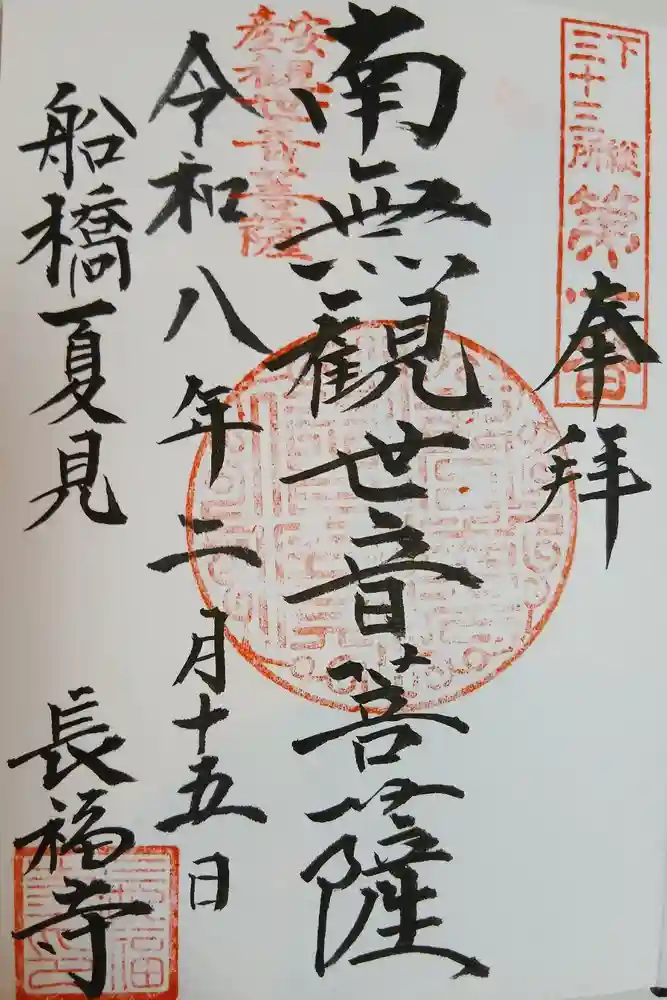 奉拝
下総三十三所
第
番
南無観世音菩薩
安産観世音菩薩
令和八年二月十五日
船橋夏見
長福寺